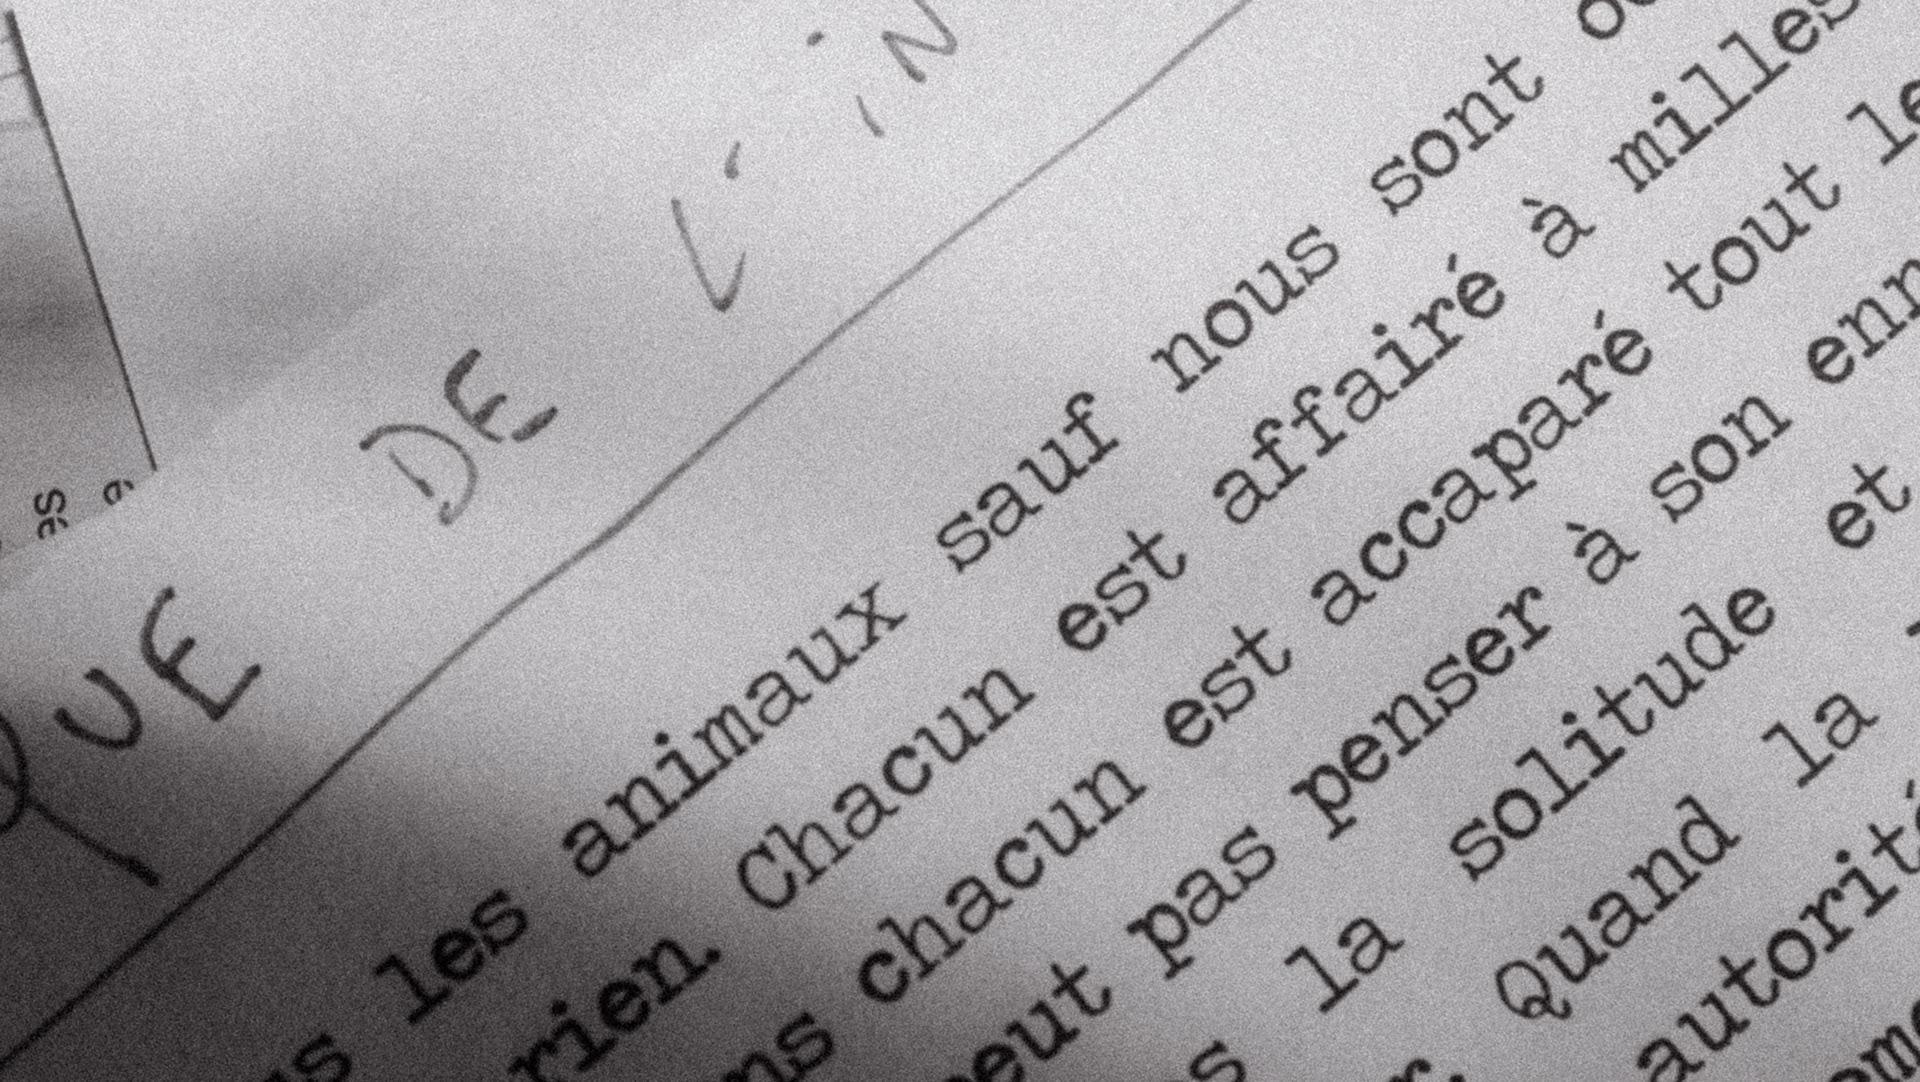 QUE DE L'IN
les animaux sauf nous sont
rien. Chacun est affairé à milles
chacun est accaparé tout le
peut pas penser à son
la solitude et
Quand la
autorité